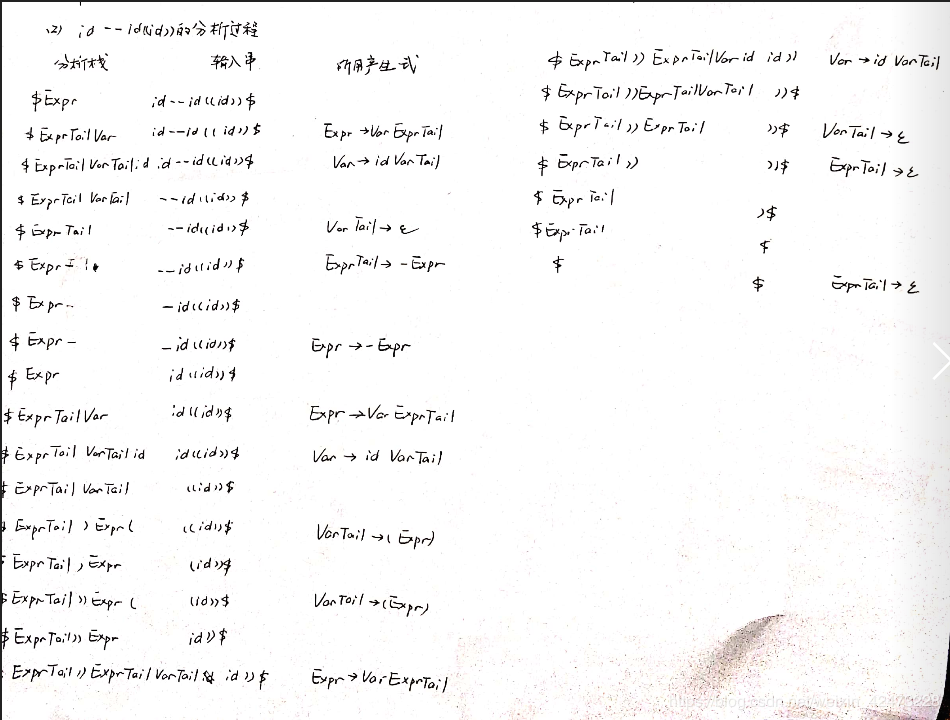 (2) id--id((id))的分析过程
分析栈 输入串 所用产生式
$Expr id--id((id))$
$ExprTailVar id--id((id))$ Expr→VarExprTail
$ExprTail VarTail id id--id((id))$ Var→id VarTail
$ExprTail VarTail --id((id))$
$ExprTail --id((id))$ VarTail→ε
$Expr- --id((id))$ ExprTail→-Expr
$Expr- -id((id))$
$Expr- -id((id))$ Expr→-Expr
$Expr id((id))$
$ExprTailVar id((id))$ Expr→Var ExprTail
$ExprTail VarTail id id((id))$ Var→id VarTail
$ExprTail VarTail ((id))$
$ExprTail)Expr( ((id))$ VarTail→(Expr)
$ExprTail)Expr (id))$
$ExprTail))Expr( (id))$ VarTail→(Expr)
$ExprTail))Expr id))$
ExprTail))ExprTail VarTail id))$ Expr→VarExprTail
$ExprTail))ExprTailVar id id)) Var→id VarTail
$ExprTail))ExprTailVarTail ))$
$ExprTail))ExprTail ))$ VarTail→ε
$ExprTail)) ))$ ExprTail→ε
$ExprTail )$
$ExprTail $
$ $ ExprTail→ε